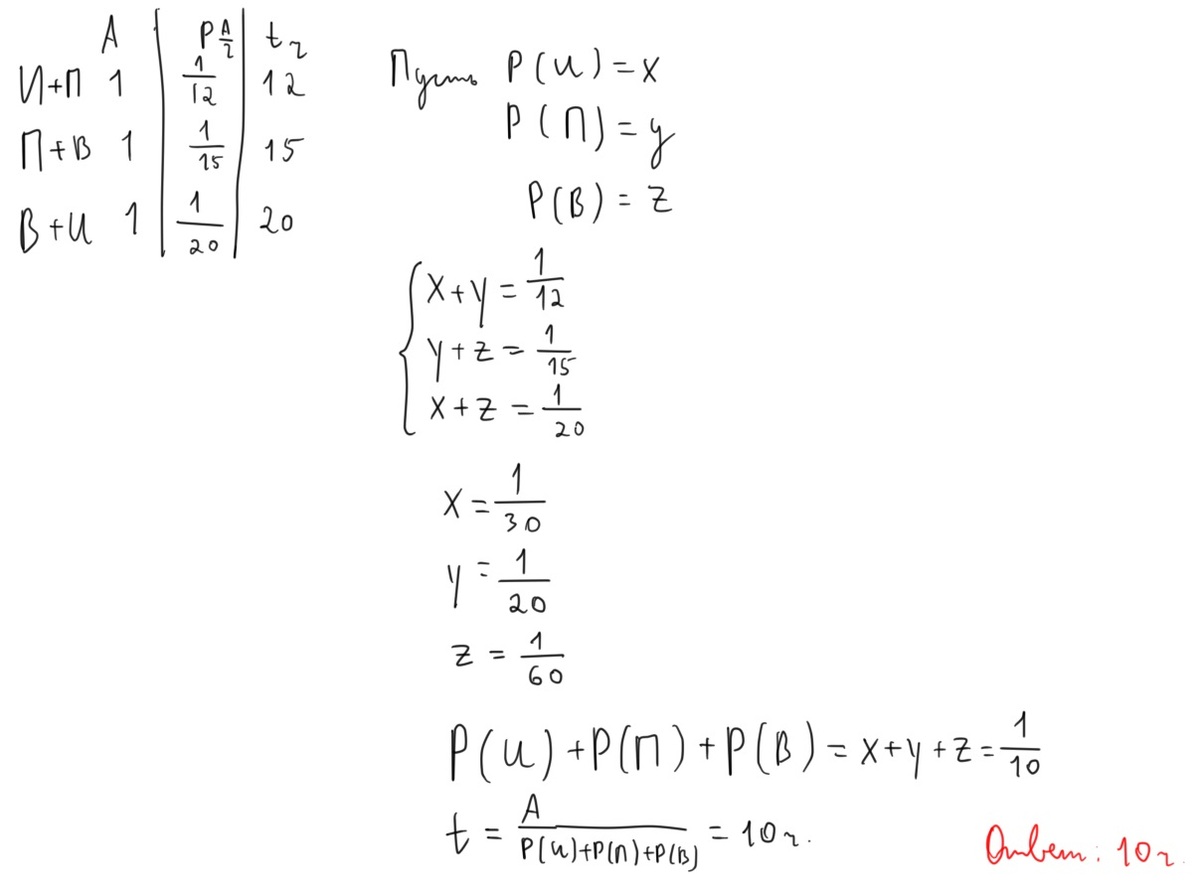 A | P A/ч | t ч
И+П 1 | 1/12 | 12
П+В 1 | 1/15 | 15
В+И 1 | 1/20 | 20
Пусть P(И)=x
P(П)=y
P(В)=z
x+y=1/12
y+z=1/15
x+z=1/20
x=1/30
y=1/20
z=1/60
P(И)+P(П)+P(В)=x+y+z=1/10
t=A/P(И)+P(П)+P(В)=10ч.
Ответ: 10ч